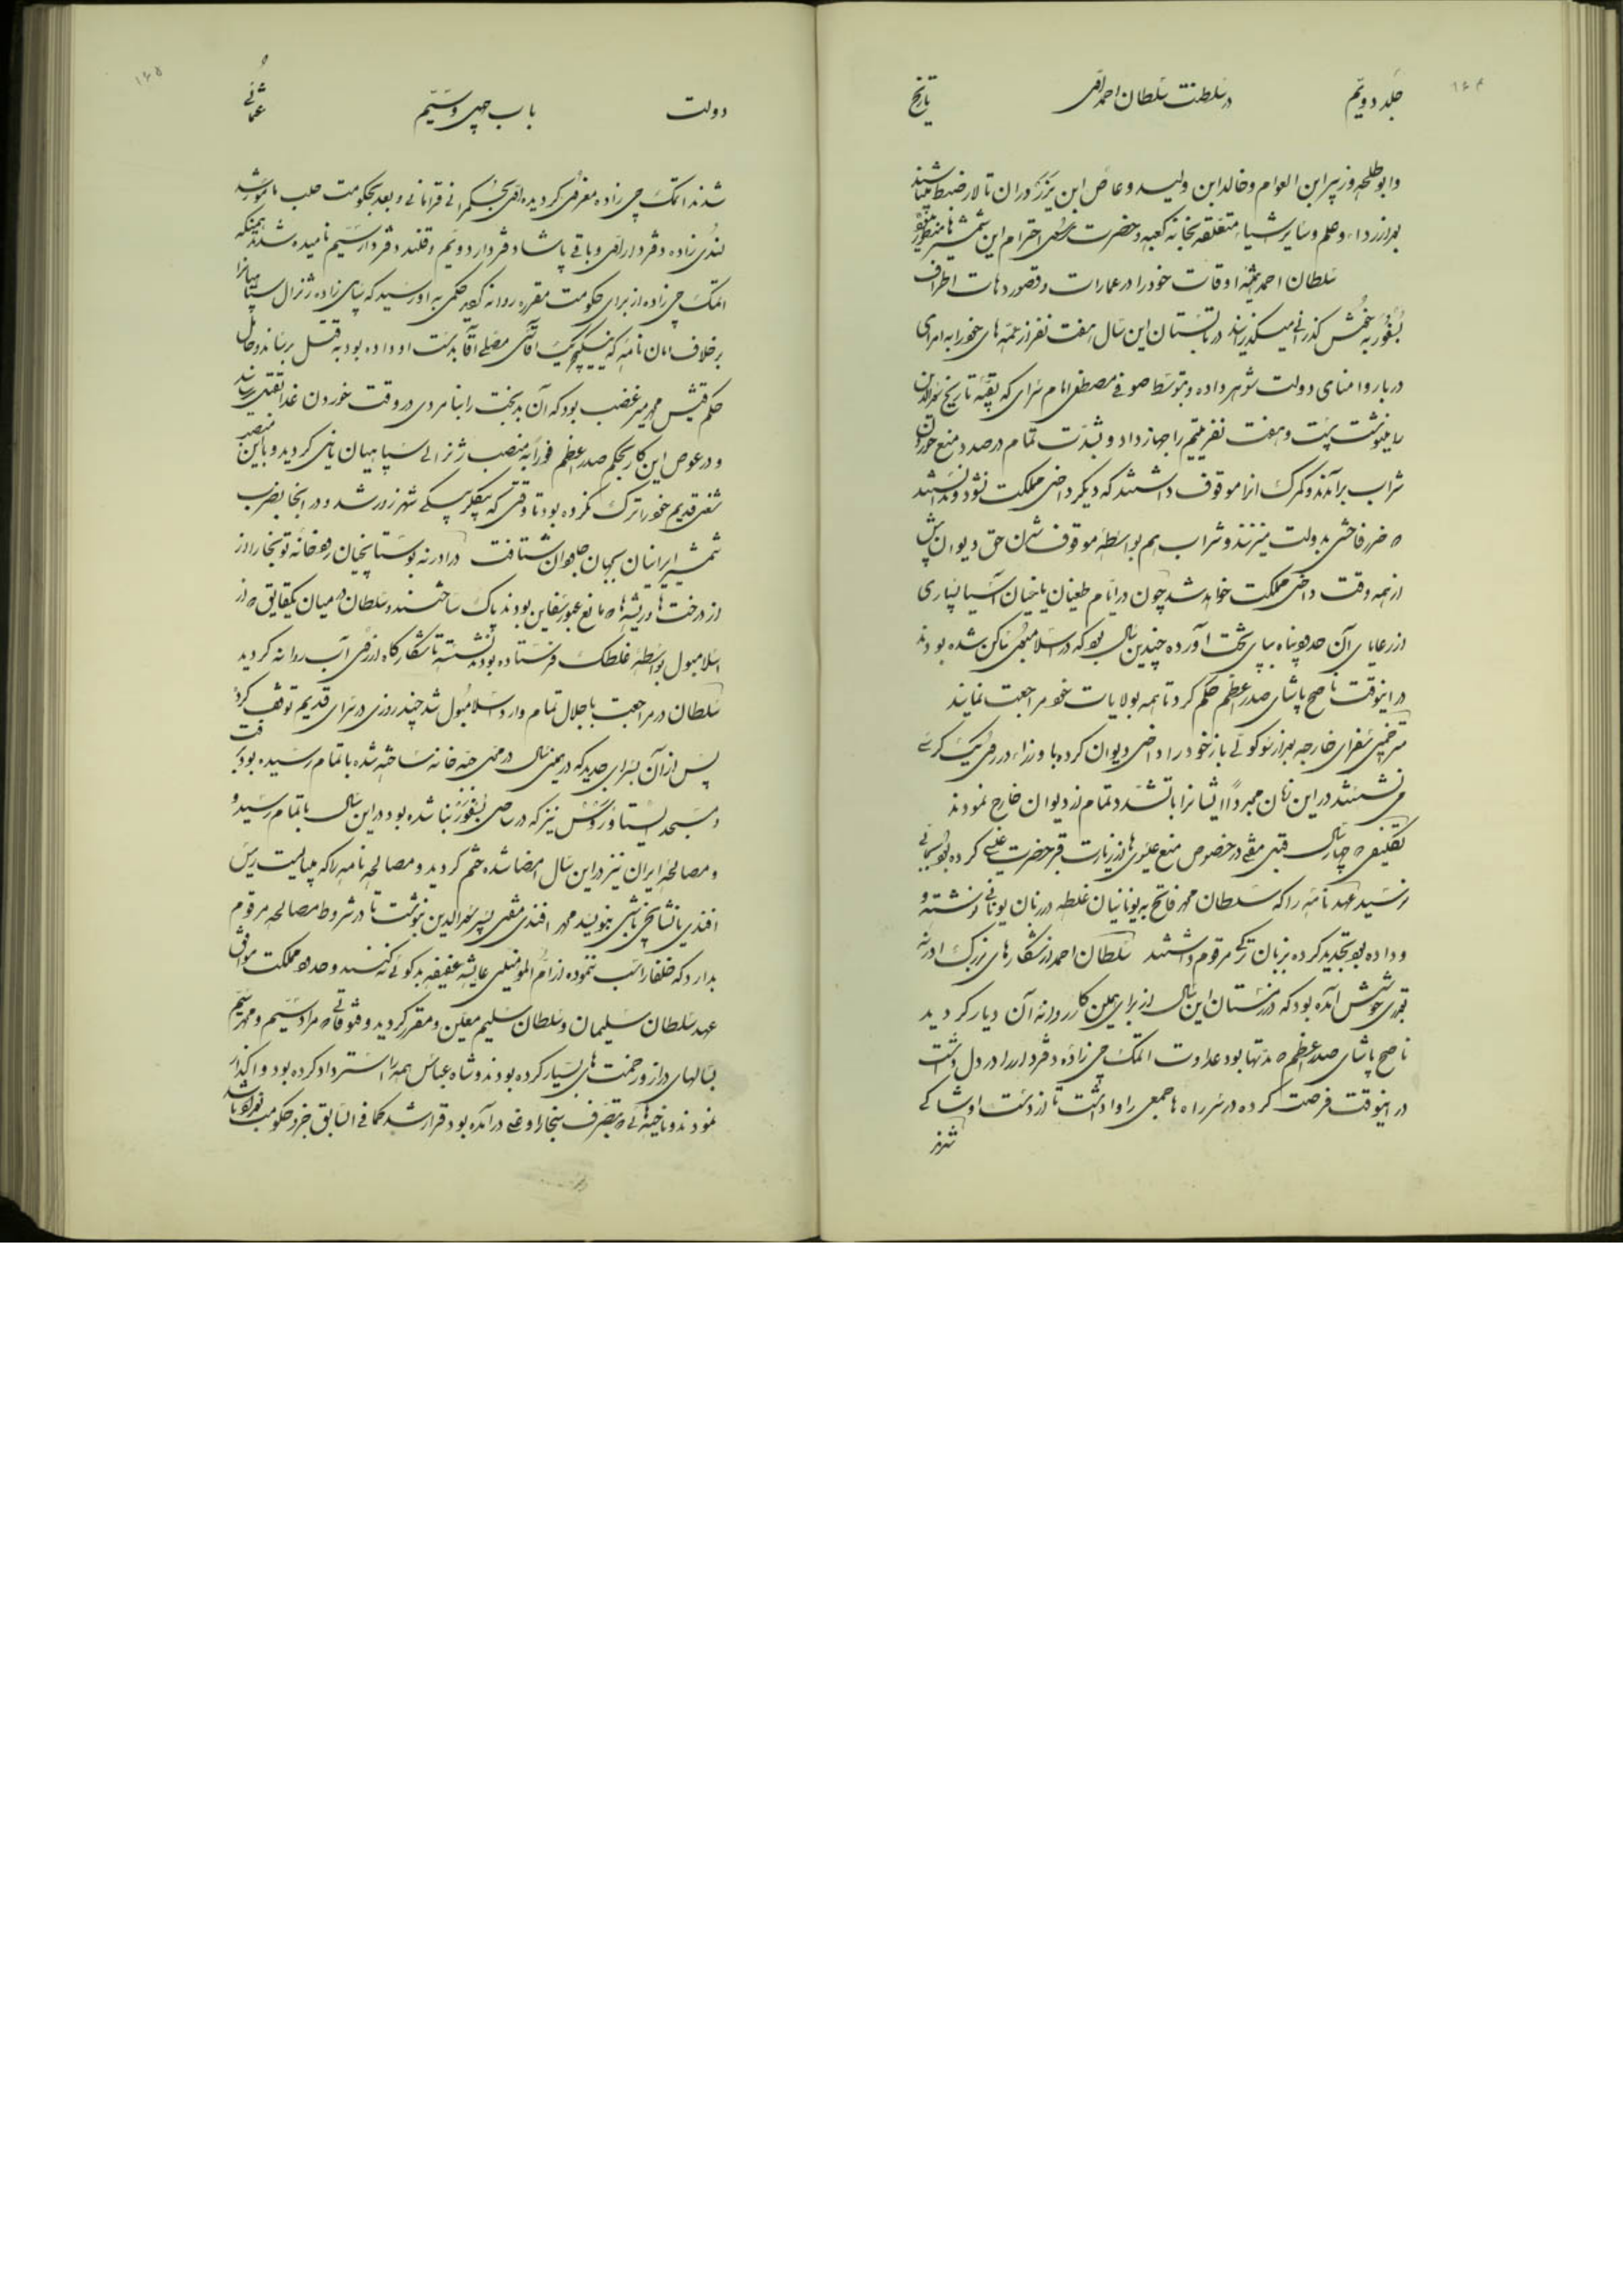 ۱۶۴
جلد دویّم
در سلطنت سلطان احمد اوّل
تاریخ
وابوطلحه وزبیر ابن العوام وخالد ابن ولید وعاص ابن در ان تالار ضبط میباشند
بعد از ردا، وعلم وسایر اشیاء متعلقه بخانه کعبه وحضرت احترام این شمشیرها منظور
سلطان احمد همیشه اوقات خود را در عمارات و قصور دهات اطراف
بسفور به خوش گذرانی میگذرانید در تابستان این سال هفت نفر از عمّه های خود را به امرای
دربار و امنای دولت شوهر داده و بتوسط صوفی مصطفی امام سرای که بقیّه تاریخ سعدالدین
را مینوشت بیست وهفت نفر یتیم را جهاز داد و بشدّت تمام در صدد منع خوردن
شراب برآمدند و گمرک انرا موقوف داشتند که دیگر داخل مملکت نشود و ندانستند
که ضرر فاحشی بدولت میزنند و شراب هم بواسطه موقوف شدن حق دیوان بیش
از همه وقت داخل مملکت خواهد شد چون در ایّام طغیان یاغیان آسیا بسیاری
از رعایای آن حدود پناه بپای تخت آورده چندین سال بود که در اسلامبول ساکن شده بودند
در اینوقت ناصح پاشای صدر اعظم حکم کرد تا همه بولایات خود مراجعت نمایند
مترجمین سفرای خارجه بعد از سوکوللی باز خود را داخل دیوان کرده با وزراء در روی یک کرسی
می نشستند در این زمان مجدداً ایشانرا با تشدّد تمام از دیوان خارج نمودند
تکلیفی که چهار سال قبل مفتی در خصوص منع عیسوی ها از زیارت قبر حضرت عیسی کرده بود بسمع
نرسید عهد نامه را که سلطان محمد فاتح به یونانیان غلطه در زبان یونانی نوشته و
و داده بود تجدید کرده بزبان ترکی مرقوم داشتند سلطان احمد از شکارهای بزرگ ادرنه
بقدری خوشش آمده بود که در زمستان این سال از برای همین کار روانه آن دیار گردید
ناصح پاشای صدر اعظم که مدتها بود عداوت اتمک چی زاده دفتردار را در دل داشت
در اینوقت فرصت کرده در سر راه ها جمعی را واداشت تا از دست او شاکی
۱۶۵
دولت
باب چهل وسیّم
عثمانی
شدند اتمک چی زاده معزول گردیده اوّل بحکمرانی قرامانی و بعد بحکومت حلب مامور شد
زاده دفتردار اوّل وباقی پاشا دفتردار دویّم وقلندر دفتردار سیّم نامیده شدند همینکه
اتمک چی زاده از برای حکومت مقرره روانه گردید حکمی به او رسید که پسر زاده ژنرال سپاهیانرا
برخلاف امان نامه که ینگیچریک آقاسی مصلی آقا بدست او داده بود به قتل برساند و حامل
حکم قتلش محمد میر غضب بود که آن بدبخت را بنامردی در وقت خوردن غذا بقتل رساند
و در عوض این کار بحکم صدر اعظم فوراً به منصب ژنرالی سپاهیان نایل گردید و با این منصب
شغل قدیم خود را ترک نکرده بود تا وقتی که بیگلربیگی شهرزور شد و در انجا بضرب
شمشیر ایرانیان بجهان جاودان شتافت در ادرنه بوستانچیان رودخانه تونجا را از
از درخت ها و ریشه ها که مانع عبور سفاین بودند پاک ساختند و سلطان در میان یکقایق که از
اسلامبول بواسطه غلطک فرستاده بودند نشسته تا شکارگاه از روی آب روانه گردید
سلطان در مراجعت با جلال تمام وارد اسلامبول شد چند روزی در سرای قدیم توقف کرد
پس از آن بسرای جدید که در همین سال در محلی جبّه خانه ساخته شده با تمام رسیده بود رفت
و مسجد نیز که در ساحل بسفور بنا شده بود در این سال باتمام رسید و
و مصالحه ایران نیز در این سال امضا شده ختم گردید و مصالحه نامه را که میبایست رئیس
افندی یا نشانچی باشی بنویسد محمد افندی مفتی پسر سعدالدین نوشت تا در شروط مصالحه مرقوم
بدارد که خلفا را سب ننموده از ام المومنین عایشه عفیفه بدگوئی نه کنند و حدود مملکت موافق
عهد سلطان سلیمان و سلطان سلیم معین و مقرر گردید و فتوحاتی که مراد سیّم و محمد سیّم
بسالهای دراز و زحمت های بسیار کرده بودند و شاه عباس همه را استرداد کرده بود واگذار
نمودند و ناحیه هائی که بتصرف بیجا راوغلی درآمده بود قرار شد کما فی السابق جزو حکومت بغداد باشد